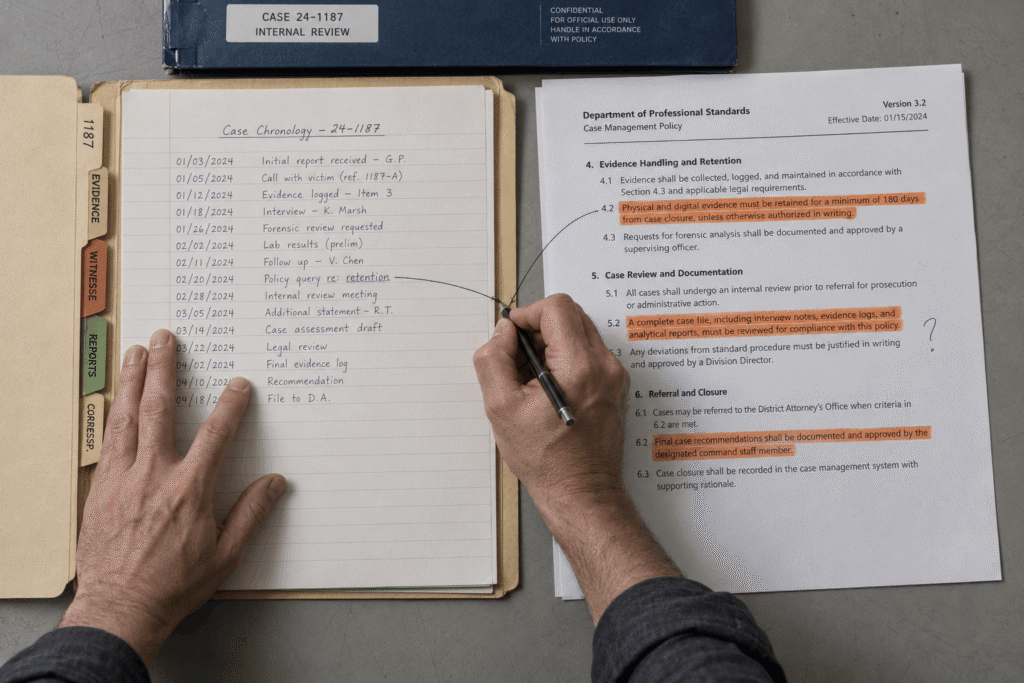 CASE 24-1187
INTERNAL REVIEW
CONFIDENTIAL
FOR OFFICIAL USE ONLY
HANDLE IN ACCORDANCE
WITH POLICY
1187
EVIDENCE
WITNESSE
REPORTS
CORRESP.
Case Chronology – 24-1187
01/03/2024 Initial report received – G.P.
01/05/2024 Call with victim (ref. 1187-A)
01/12/2024 Evidence logged – Item 3
01/18/2024 Interview – K. Marsh
01/26/2024 Forensic review requested
02/02/2024 Lab results (prelim)
02/11/2024 Follow up – V. Chen
02/20/2024 Policy query re: retention
02/28/2024 Internal review meeting
03/05/2024 Additional statement – R.T.
03/14/2024 Case assessment draft
03/22/2024 Legal review
04/02/2024 Final evidence log
04/10/202 Recommendation
04/18/2 File to D.A.
Department of Professional Standards
Case Management Policy
Version 3.2
Effective Date: 01/15/2024
4. Evidence Handling and Retention
4.1 Evidence shall be collected, logged, and maintained in accordance with
Section 4.3 and applicable legal requirements.
4.2 Physical and digital evidence must be retained for a minimum of 180 days
from case closure, unless otherwise authorized in writing.
4.3 Requests for forensic analysis shall be documented and approved by a
supervising officer.
5. Case Review and Documentation
5.1 All cases shall undergo an internal review prior to referral for prosecution
or administrative action.
5.2 A complete case file, including interview notes, evidence logs, and
analytical reports, must be reviewed for compliance with this policy.
?
5.3 Any deviations from standard procedure must be justified in writing
and approved by a Division Director.
6. Referral and Closure
6.1 Cases may be referred to the District Attorney's Office when criteria in
6.2 are met.
6.2 Final case recommendations shall be documented and approved by the
designated command staff member.
6.3 Case closure shall be recorded in the case management system with
supporting rationale.